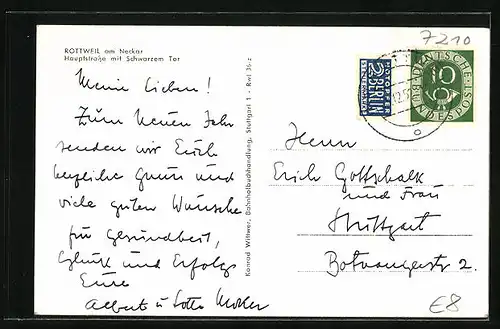 7210
ROTTWEIL am Neckar
Hauptstraße mit Schwarzem Tor
Meine Lieben!
Zum Neuen Jahr
senden wir Euch
herzliche Grüsse und
viele guten Wünsche
für Gesundheit,
Glück und Erfolg
Eure
Albert u Lotte
Konrad Wittwer, Bahnhofbuchhandlung, Stuttgart 1 - Rwl 36 z
NOTOPFER
2 BERLIN
STEUERMARKE
DEUTSCHE
BUNDESPOST
10
12.5
Herrn
Erich Gottschalk
und Frau
Stuttgart
Botnangerstr 2.
E8